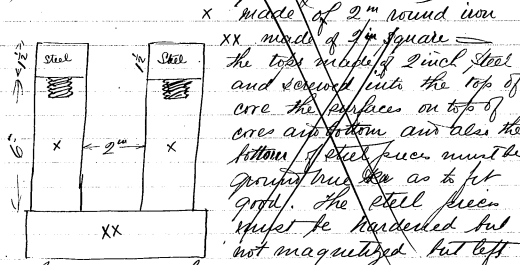 x made of 2 in round iron
xx made of 2 in square
the tops made of 2 inch steel
and screwed into the top of
core the surfaces on top of
cores and bottom and also the
bottom of steel pieces must be
ground true so as to fit
good. The steel pieces
must be hardened but
not magnetized but left
Steel
Steel
1½"
1½
6"
x
2 in
x
xx